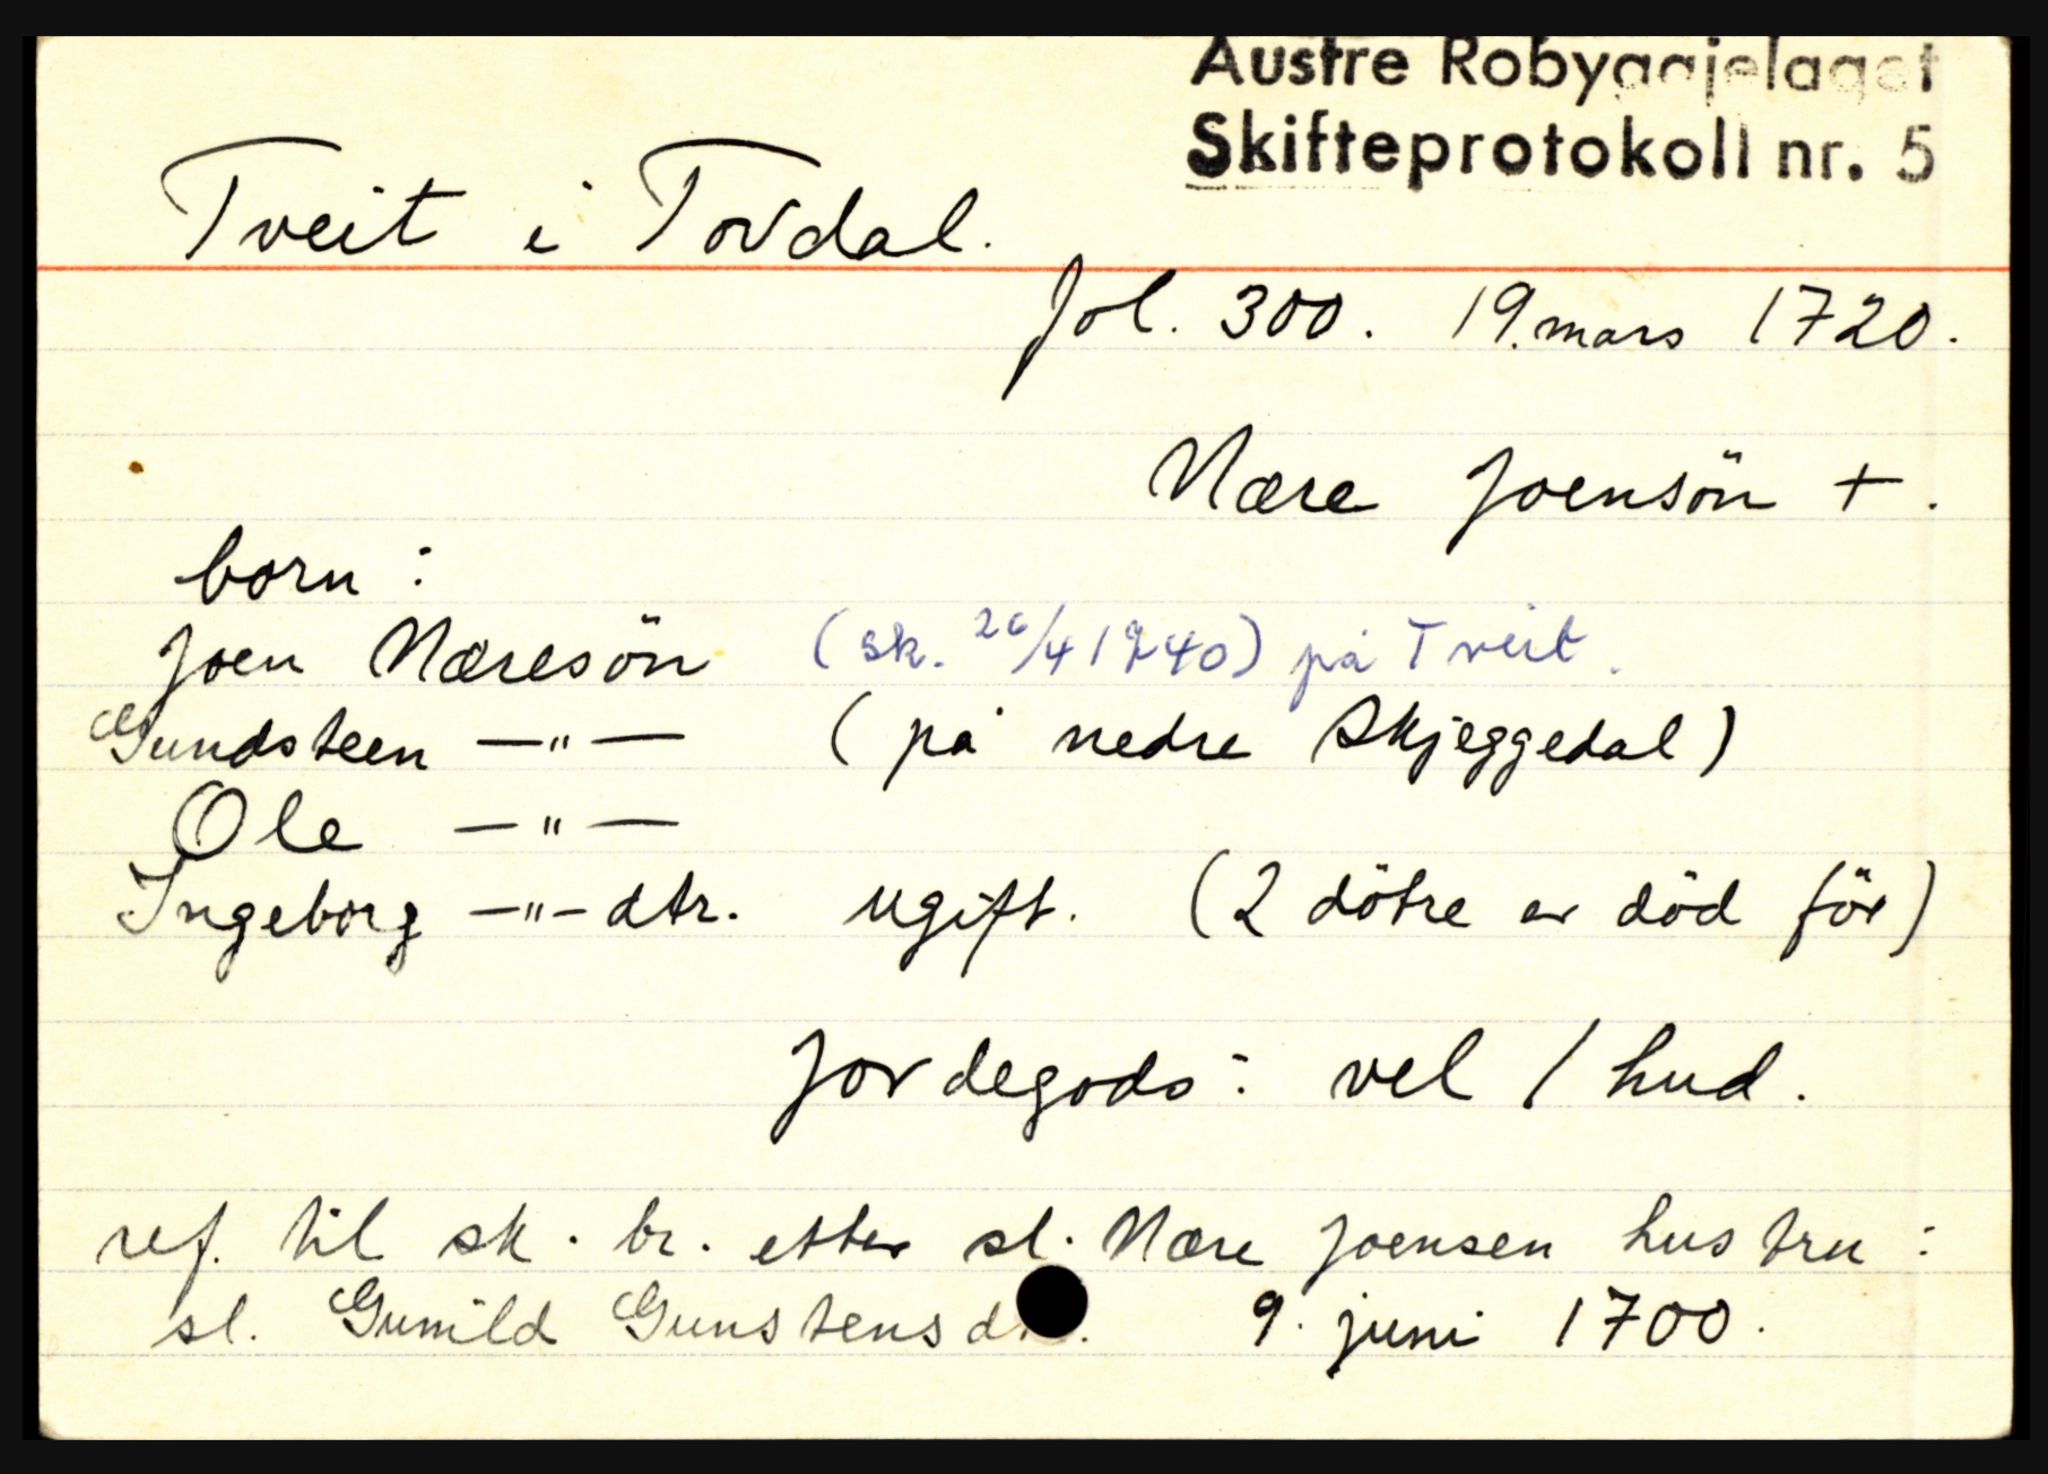 Austre Robyggjelaget
Skifteprotokoll nr. 5
Tveit i Tovdal.
fol. 300. 19. mars 1720.
Nære Joensön +.
born:
Joen Næresön (sk. 26/4 1740) på Tveit.
Gundsteen —"— (på nedre Skjeggedal)
Ole —"—
Ingeborg —"— dtr. ugift. (2 dötre er död för)
Jordegods: vel 1 hud.
ref. til sk. br. etter sl. Nære Joensen hustru:
sl. Gunild Gunstensd. 9. juni 1700.